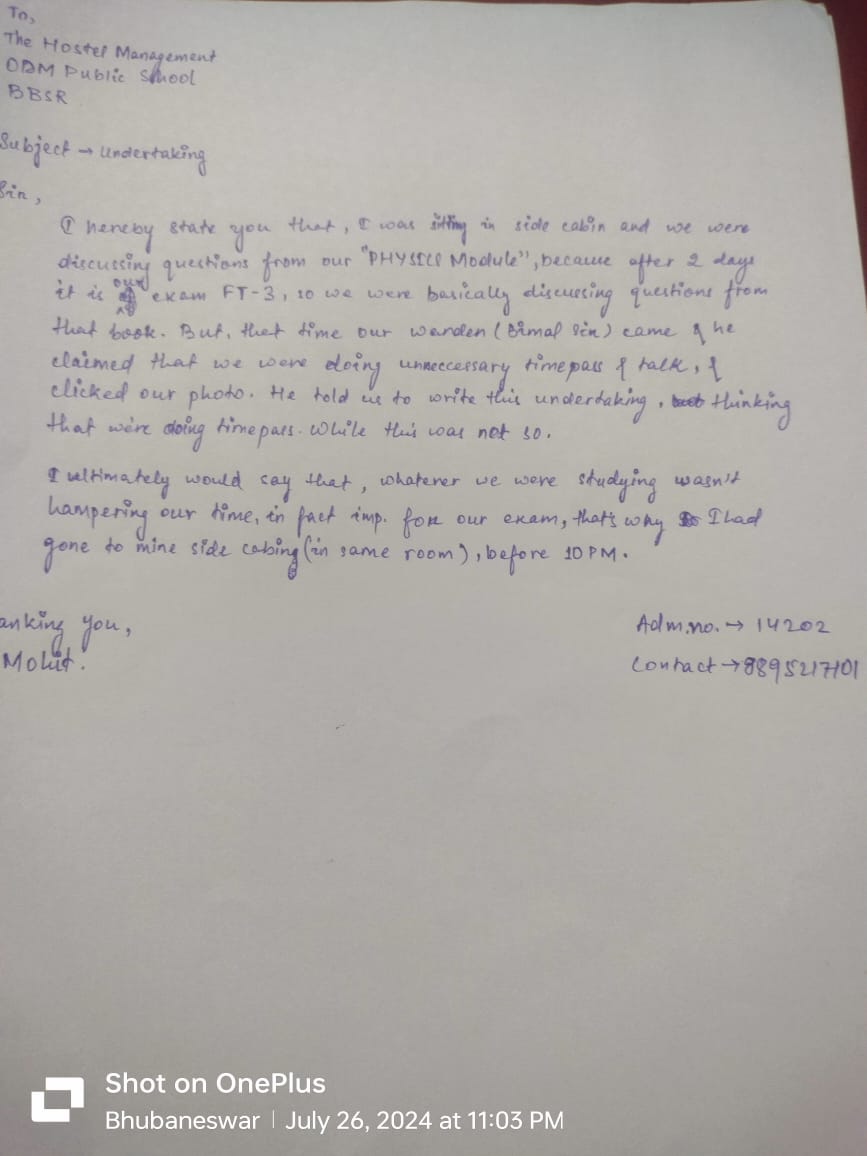 To,
The Hostel Management
ODM Public School
BBSR
Subject → Undertaking
Sir,
I hereby state you that, I was sitting in side cabin and we were
discussing questions from our "PHYSICS Module", because after 2 days
it is our exam FT-3, so we were basically discussing questions from
that book. But, that time our warden (Bimal Sir) came & he
claimed that we were doing unneccessary timepass & talk, &
clicked our photo. He told us to write this undertaking, thinking
that we're doing timepass. While this was not so.
I ultimately would say that, whatever we were studying wasn't
hampering our time, in fact imp. for our exam, that's why I had
gone to mine side cabing (in same room), before 10 PM.
anking you,
Mohit.
Adm.no. → 14202
Contact → 8895217101
Shot on OnePlus
Bhubaneswar | July 26, 2024 at 11:03 PM